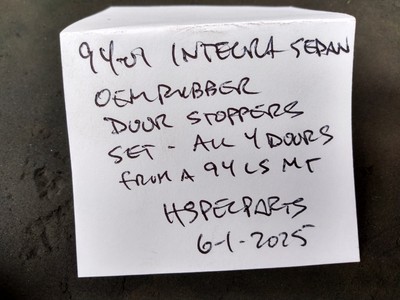 94-01 INTEGRA SEDAN
OEM RUBBER
DOOR STOPPERS
SET - ALL 4 DOORS
FROM A 94 LS MT
HSPECPARTS
6-1-2025